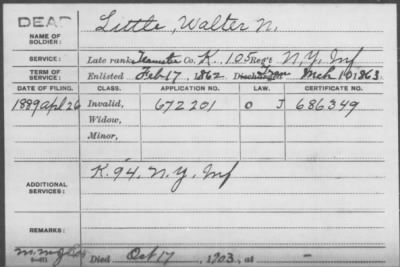 DEAD
Little, Walter N.
NAME OF SOLDIER:
SERVICE: Late rank, Teamster Co. K, 105 Reg't N.Y. Inf
TERM OF SERVICE: Enlisted Feb 17, 1862 Discharged Mch 10 1863.
DATE OF FILING. CLASS. APPLICATION NO. LAW. CERTIFICATE NO.
1889 Apl 26 Invalid, 672201 O J 686349
Widow,
Minor,
K. 94. N.Y. Inf
ADDITIONAL SERVICES:
REMARKS:
Died Oct 17, 1903, at -